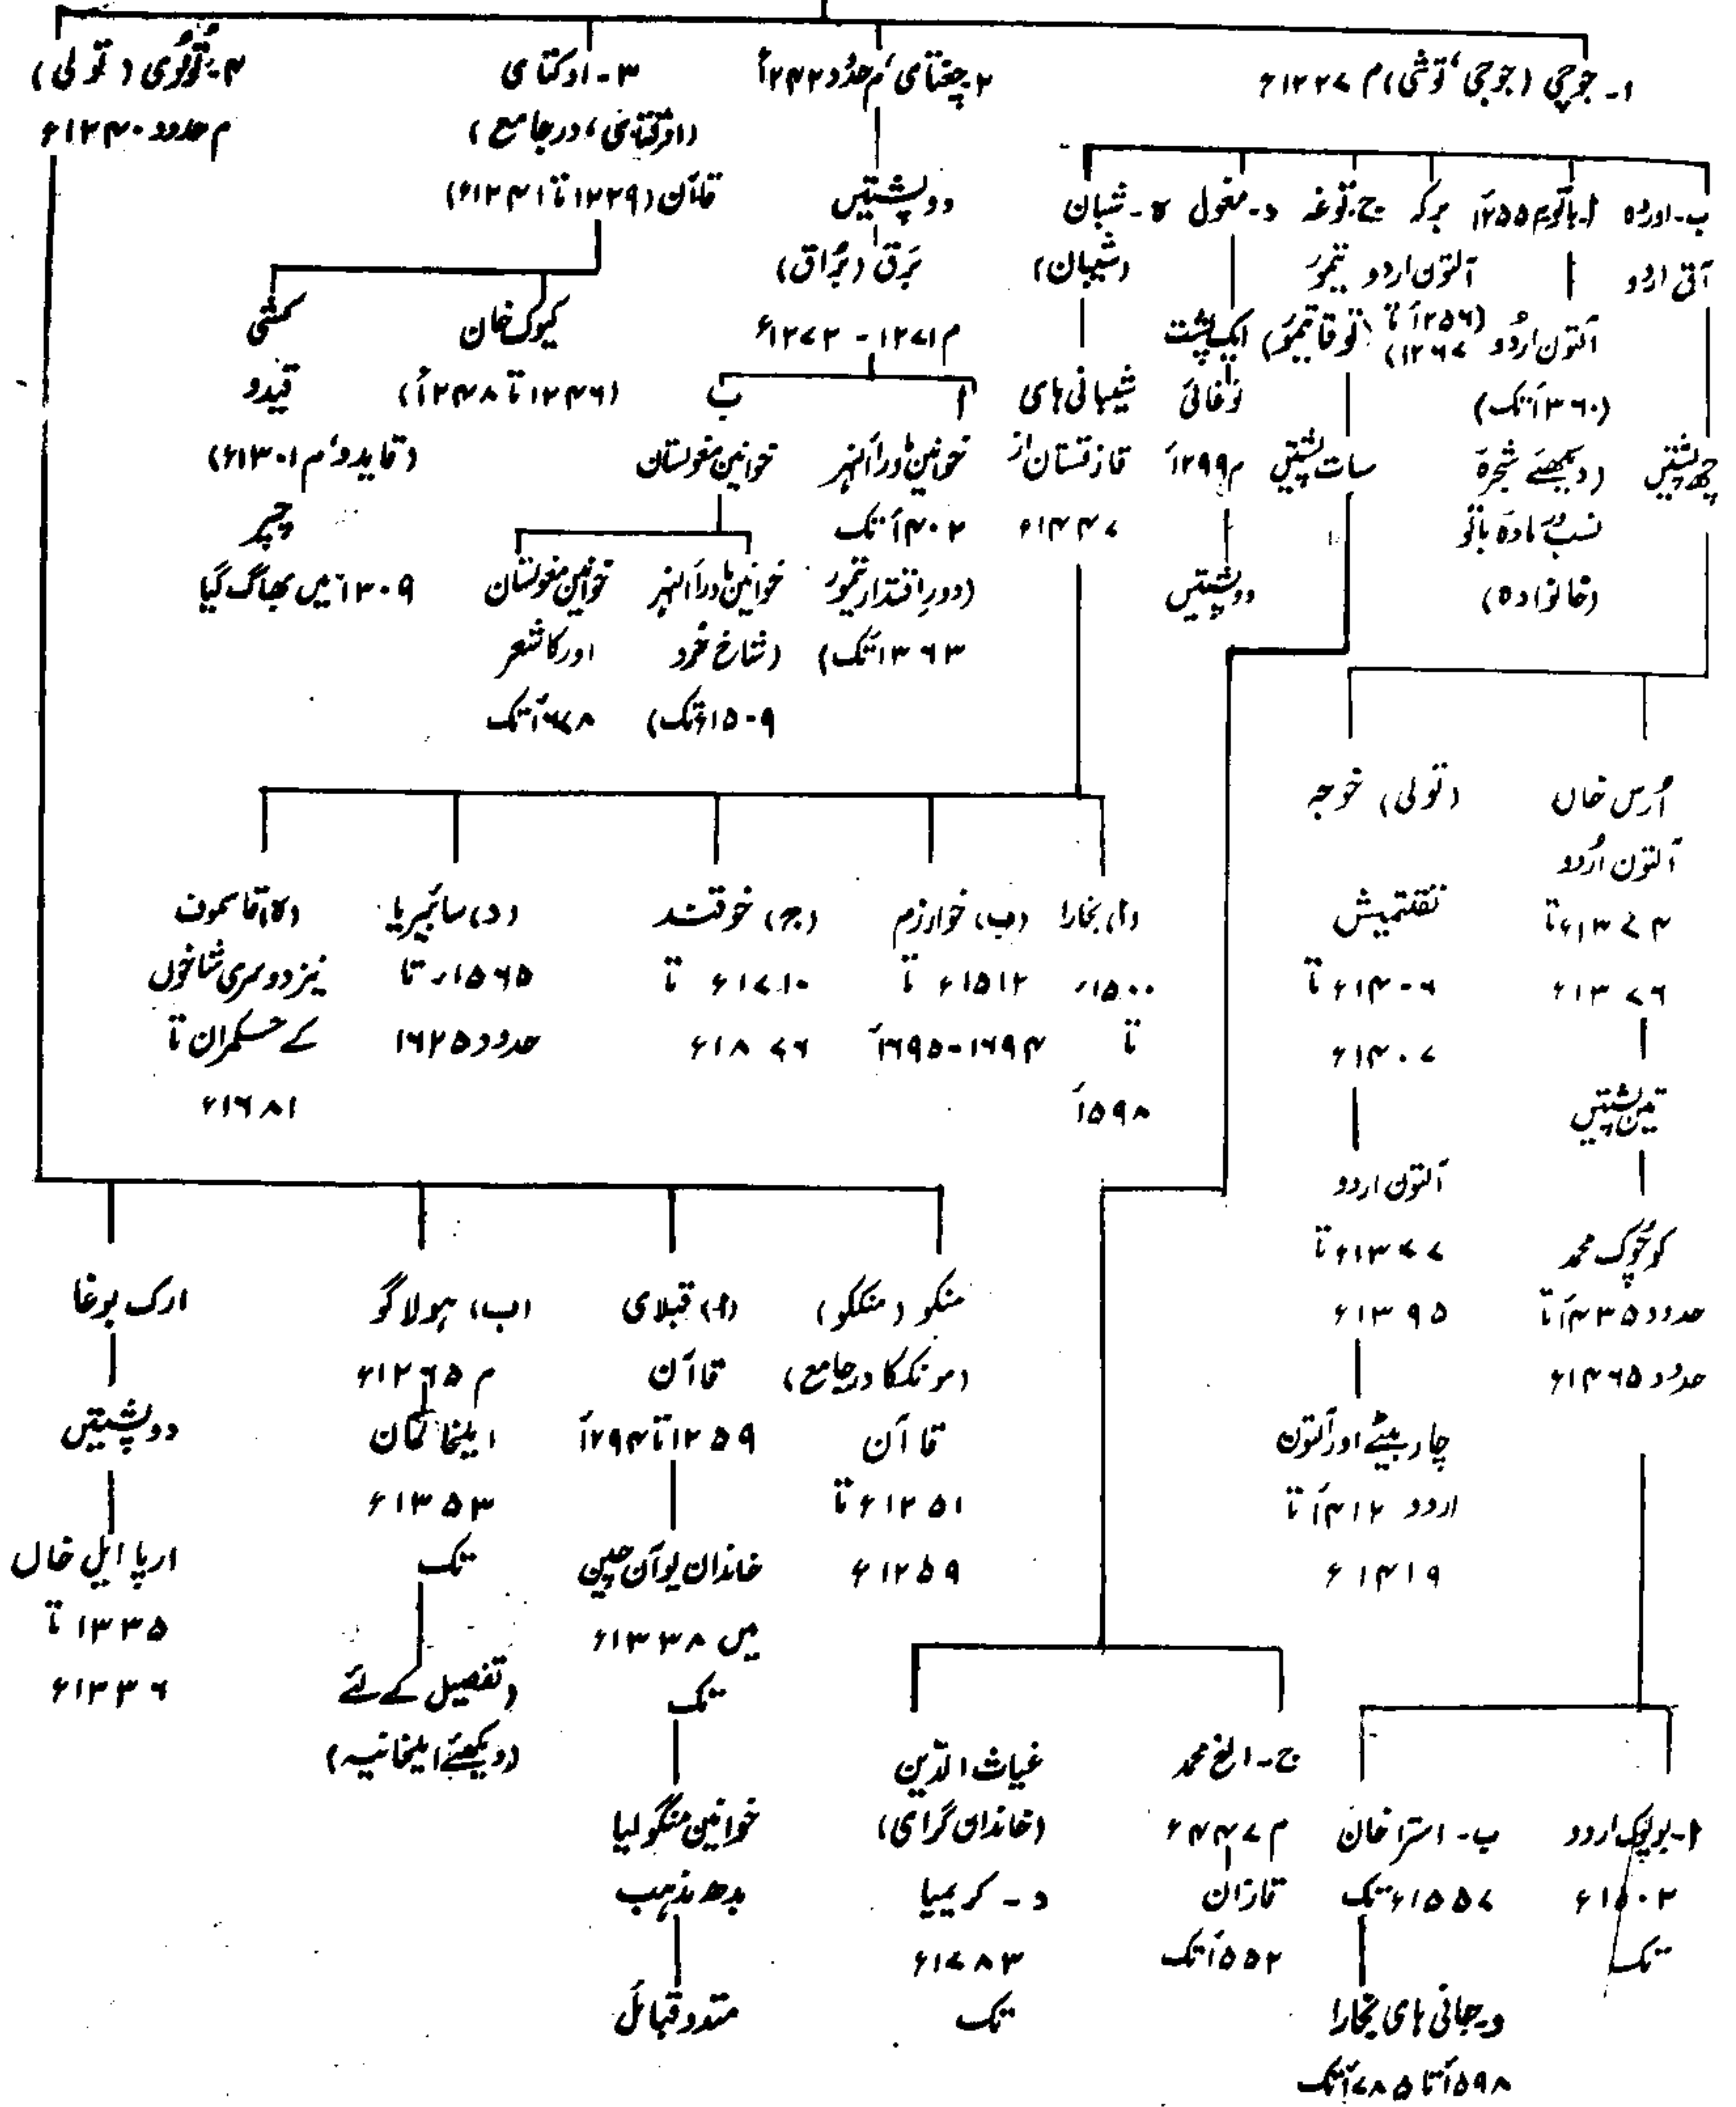 ۱۔ جوچی (جوجی، توشی) م ۱۲۲۷ء
۲۔ چغتای، م حدود ۱۲۴۲ء
۳۔ اوکتای
(اوکتای، در جامع)
قاآن (۱۲۲۹ تا ۱۲۴۱ء)
۴۔ تولوی (تولی)
م حدود ۱۲۴۰ء
ب۔ اورده
آق اردو
چھ پشتیں
ا۔ باتو م ۱۲۵۵ء
آلتون اردو
(۱۳۶۰ء تک)
(دیکھئے شجرۂ
نسب مادہ باتو
(خانوادہ)
برکہ
آلتون اردو
(۱۲۵۶ء تا
۱۲۶۷)
ج۔ توغہ
تیمور
(توقا تیمور)
سات پشتیں
د۔ مغول
ایک پشت
نوغائی
م ۱۲۹۹ء
دو پشتیں
ہ۔ شبان
(شیبان)
شیبانی ہای
قازقستان از
۱۴۴۷ء
دو پشتیں
برق (براق)
م ۱۲۷۱ - ۱۲۷۲ء
ا
خوانین ماورأالنہر
۱۴۰۲ء تک
(دورِ اقتدار تیمور
۱۳۶۳ء تک)
ب
خوانین مغولستان
خوانین ماورأالنہر
(شاخ خرد
۱۵۰۹ء تک)
خوانین مغولستان
اور کاشغر
۱۶۷۸ء تک
کیوک خان
(۱۲۴۶ تا ۱۲۴۸ء)
کشی
قیدو
(قایدو، م ۱۳۰۱ء)
چپر
۱۳۰۹ء میں بھاگ گیا
ارس خان
آلتون اردو
۱۳۷۴ء تا
۱۳۷۶ء
تین پشتیں
کوچوک محمد
حدود ۱۴۳۵ء تا
حدود ۱۴۶۵ء
(تولی) خوجہ
تقتمیش
۱۴۰۶ء تا
۱۴۰۷ء
آلتون اردو
۱۳۷۷ء تا
۱۳۹۵ء
چار بیٹے اور آلتون
اردو ۱۴۱۲ء تا
۱۴۱۹ء
(ا) بخارا
۱۵۰۰ء
تا
۱۵۹۸ء
(ب) خوارزم
۱۵۱۲ء تا
۱۶۹۴-۱۶۹۵ء
(ج) خوقند
۱۷۱۰ء تا
۱۸۷۶ء
(د) سائبیریا
۱۵۶۵ء تا
حدود ۱۶۲۵
(ہ) قاسموف
نیز دوسری شاخوں
کے حکمران تا
۱۶۸۱ء
منکو (منککو)
(مونککا در جامع)
قاآن
۱۲۵۱ء تا
۱۲۵۹ء
(ا) قبلای
قاآن
۱۲۵۹ تا ۱۲۹۴ء
خاندان یوآن چین
میں ۱۳۳۸ء
تک
خوانین منگولیا
بدھ مذہب
متعدد قبائل
(ب) ہولاگو
م ۱۲۶۵ء
ایلخانان
۱۳۵۳ء
تک
(تفصیل کے لئے
(دیکھئے ایلخانیہ)
ارک بوغا
دو پشتیں
ارپا ایل خان
۱۳۳۵ تا
۱۳۳۶ء
ا۔ بویوک اردو
۱۵۰۲ء
تک
ب۔ استراخان
۱۵۵۷ء تک
و۔ جانی ہای بخارا
۱۵۹۸ء تا ۱۷۸۵ء تک
ج۔ الغ محمد
م ۱۴۴۷ء
قازان
۱۵۵۲ء تک
غیاث الدین
(خاندان گرای)
د۔ کریمیا
۱۷۸۳ء
تک